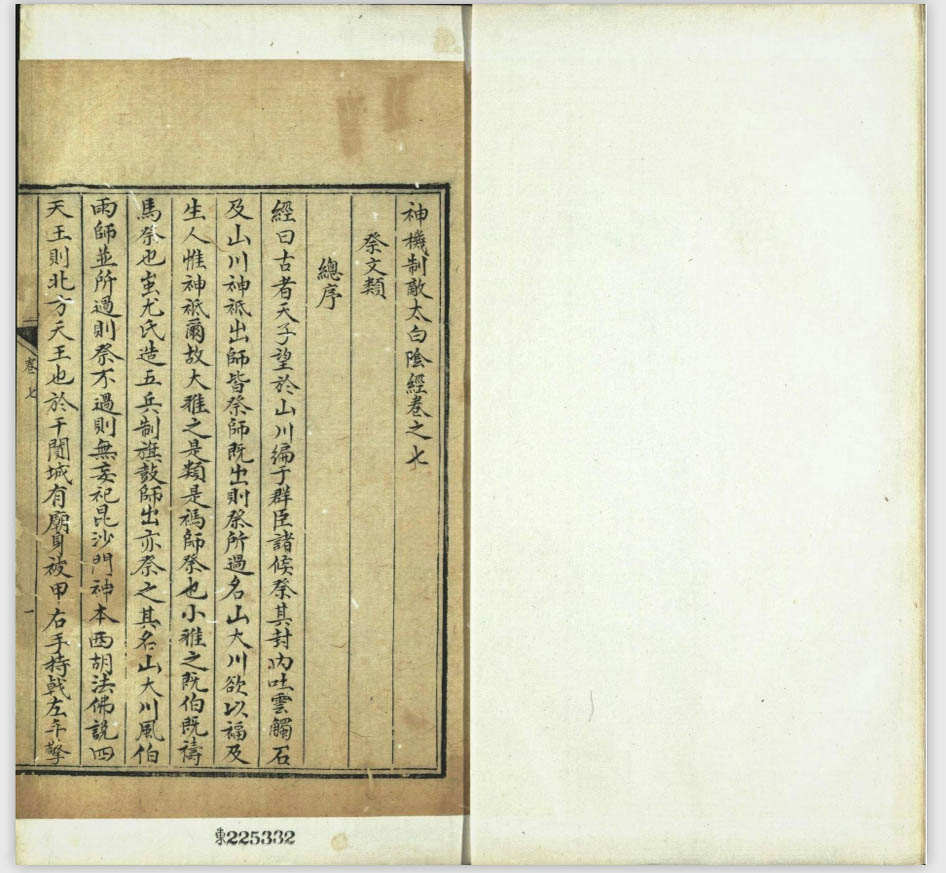 神機制敵太白陰經卷之七
祭文類
總序
經曰古者天子望於山川徧于群臣諸候祭其封內吐雲觸石
及山川神祗出師皆祭師既出則祭所過名山大川欲以福及
生人惟神祇爾故大雅之是類是禡師祭也小雅之既伯既禱
馬祭也蚩尤氏造五兵制旗鼓師出亦祭之其名山大川風伯
雨師並所過則祭不過則無妄祀昆沙門神本西胡法佛說四
天王則北方天王也於于闐城有廟身被甲右手持戟左手擎
卷七
一
東225332